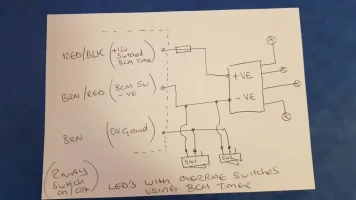 RED/BLK (+12v
Switched
BCM TIMER)
+VE
BRN/RED (BCM SW
-VE)
-VE
BRN (0V Ground)
SW1
SW2
SWITCH
ON / OFF
LED'S WITH OVERRIDE SWITCHES
USING BCM TIMER